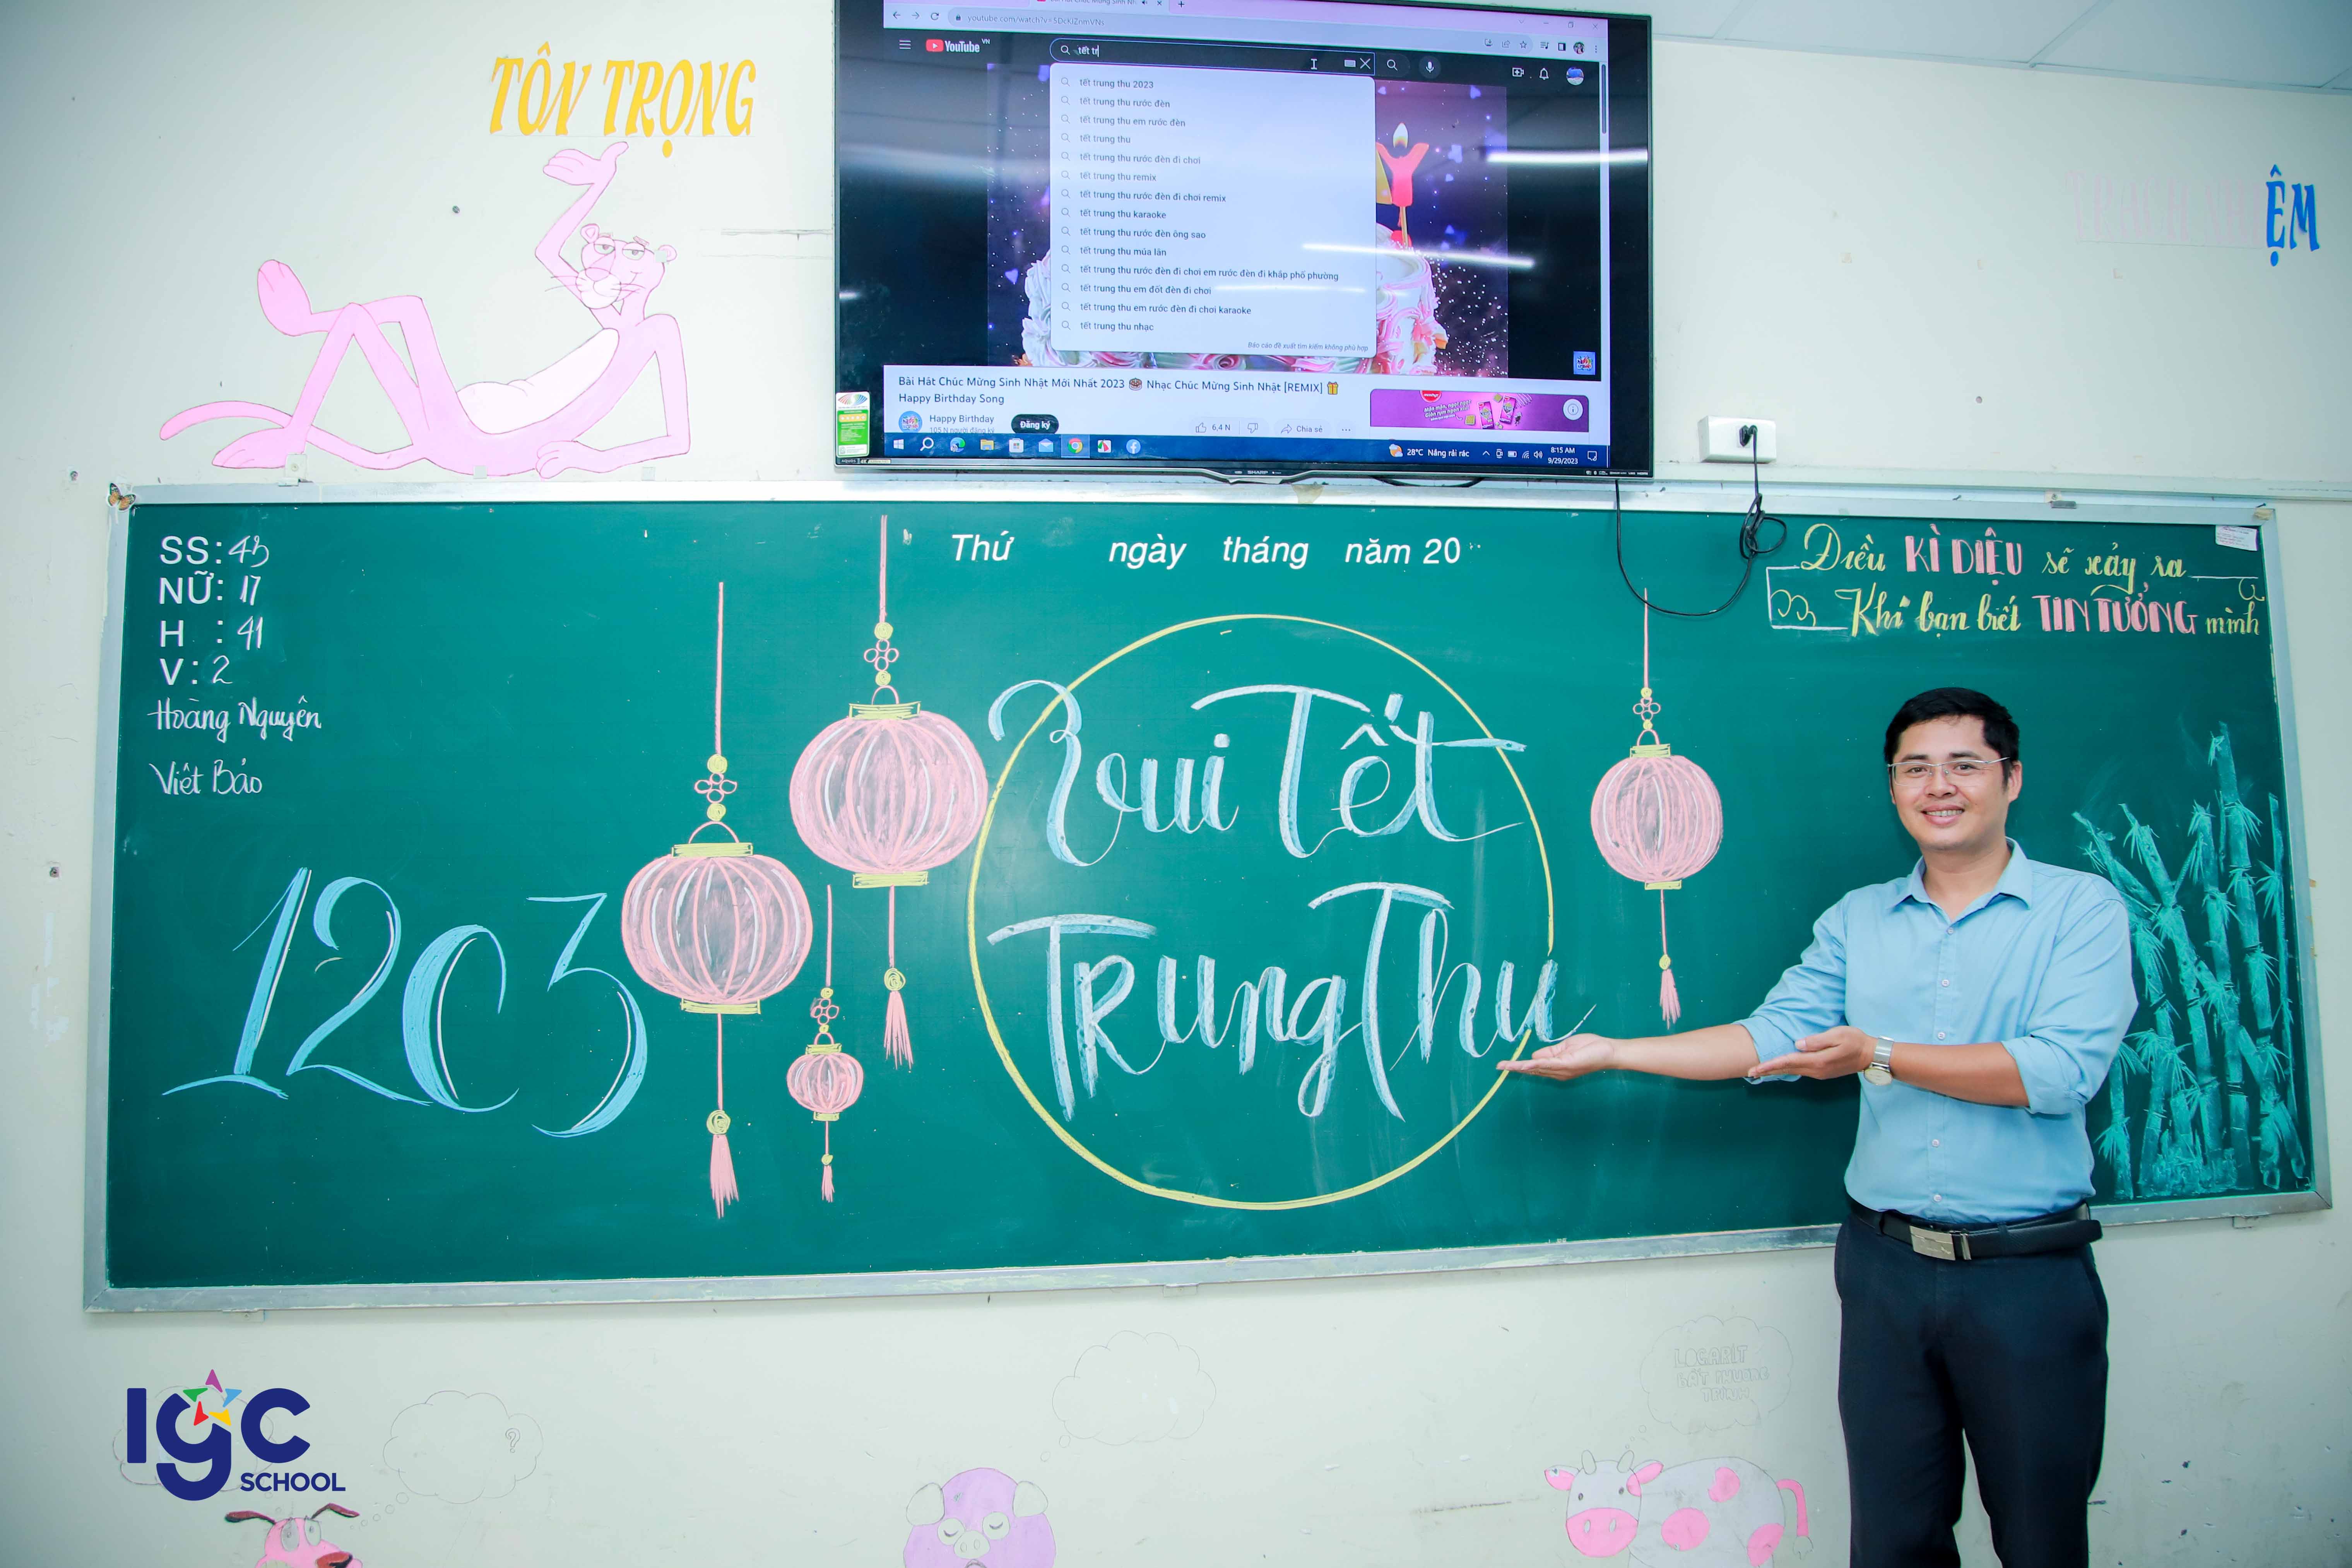 TÔN TRỌNG
youtube.com/watch?v=5DcKlZnmVNs
YouTube VN
tết tr
tết trung thu 2023
tết trung thu rước đèn
tết trung thu em rước đèn
tết trung thu
tết trung thu rước đèn đi chơi
tết trung thu remix
tết trung thu rước đèn đi chơi remix
tết trung thu karaoke
tết trung thu rước đèn ông sao
tết trung thu múa lân
tết trung thu rước đèn đi chơi em rước đèn đi khắp phố phường
tết trung thu em đốt đèn đi chơi
tết trung thu em rước đèn đi chơi karaoke
tết trung thu nhạc
Báo cáo đề xuất tìm kiếm không phù hợp
Bài Hát Chúc Mừng Sinh Nhật Mới Nhất 2023 🎂 Nhạc Chúc Mừng Sinh Nhật [REMIX] 🎁
Happy Birthday Song
Happy Birthday
105 N người đăng ký
Đăng ký
6,4 N
Chia sẻ
28°C Nắng rải rác
8:15 AM
9/29/2023
SHARP
ỆM
SS: 43
NỮ: 17
H : 41
V: 2
Hoàng Nguyên
Việt Bảo
Thứ ngày tháng năm 20
Điều KÌ DIỆU sẽ xảy ra
Khi bạn biết TIN TƯỞNG mình
12C3
Vui Tết
Trung Thu
?
LOGARIT
BẤT PHƯƠNG
TRÌNH
IGC
SCHOOL